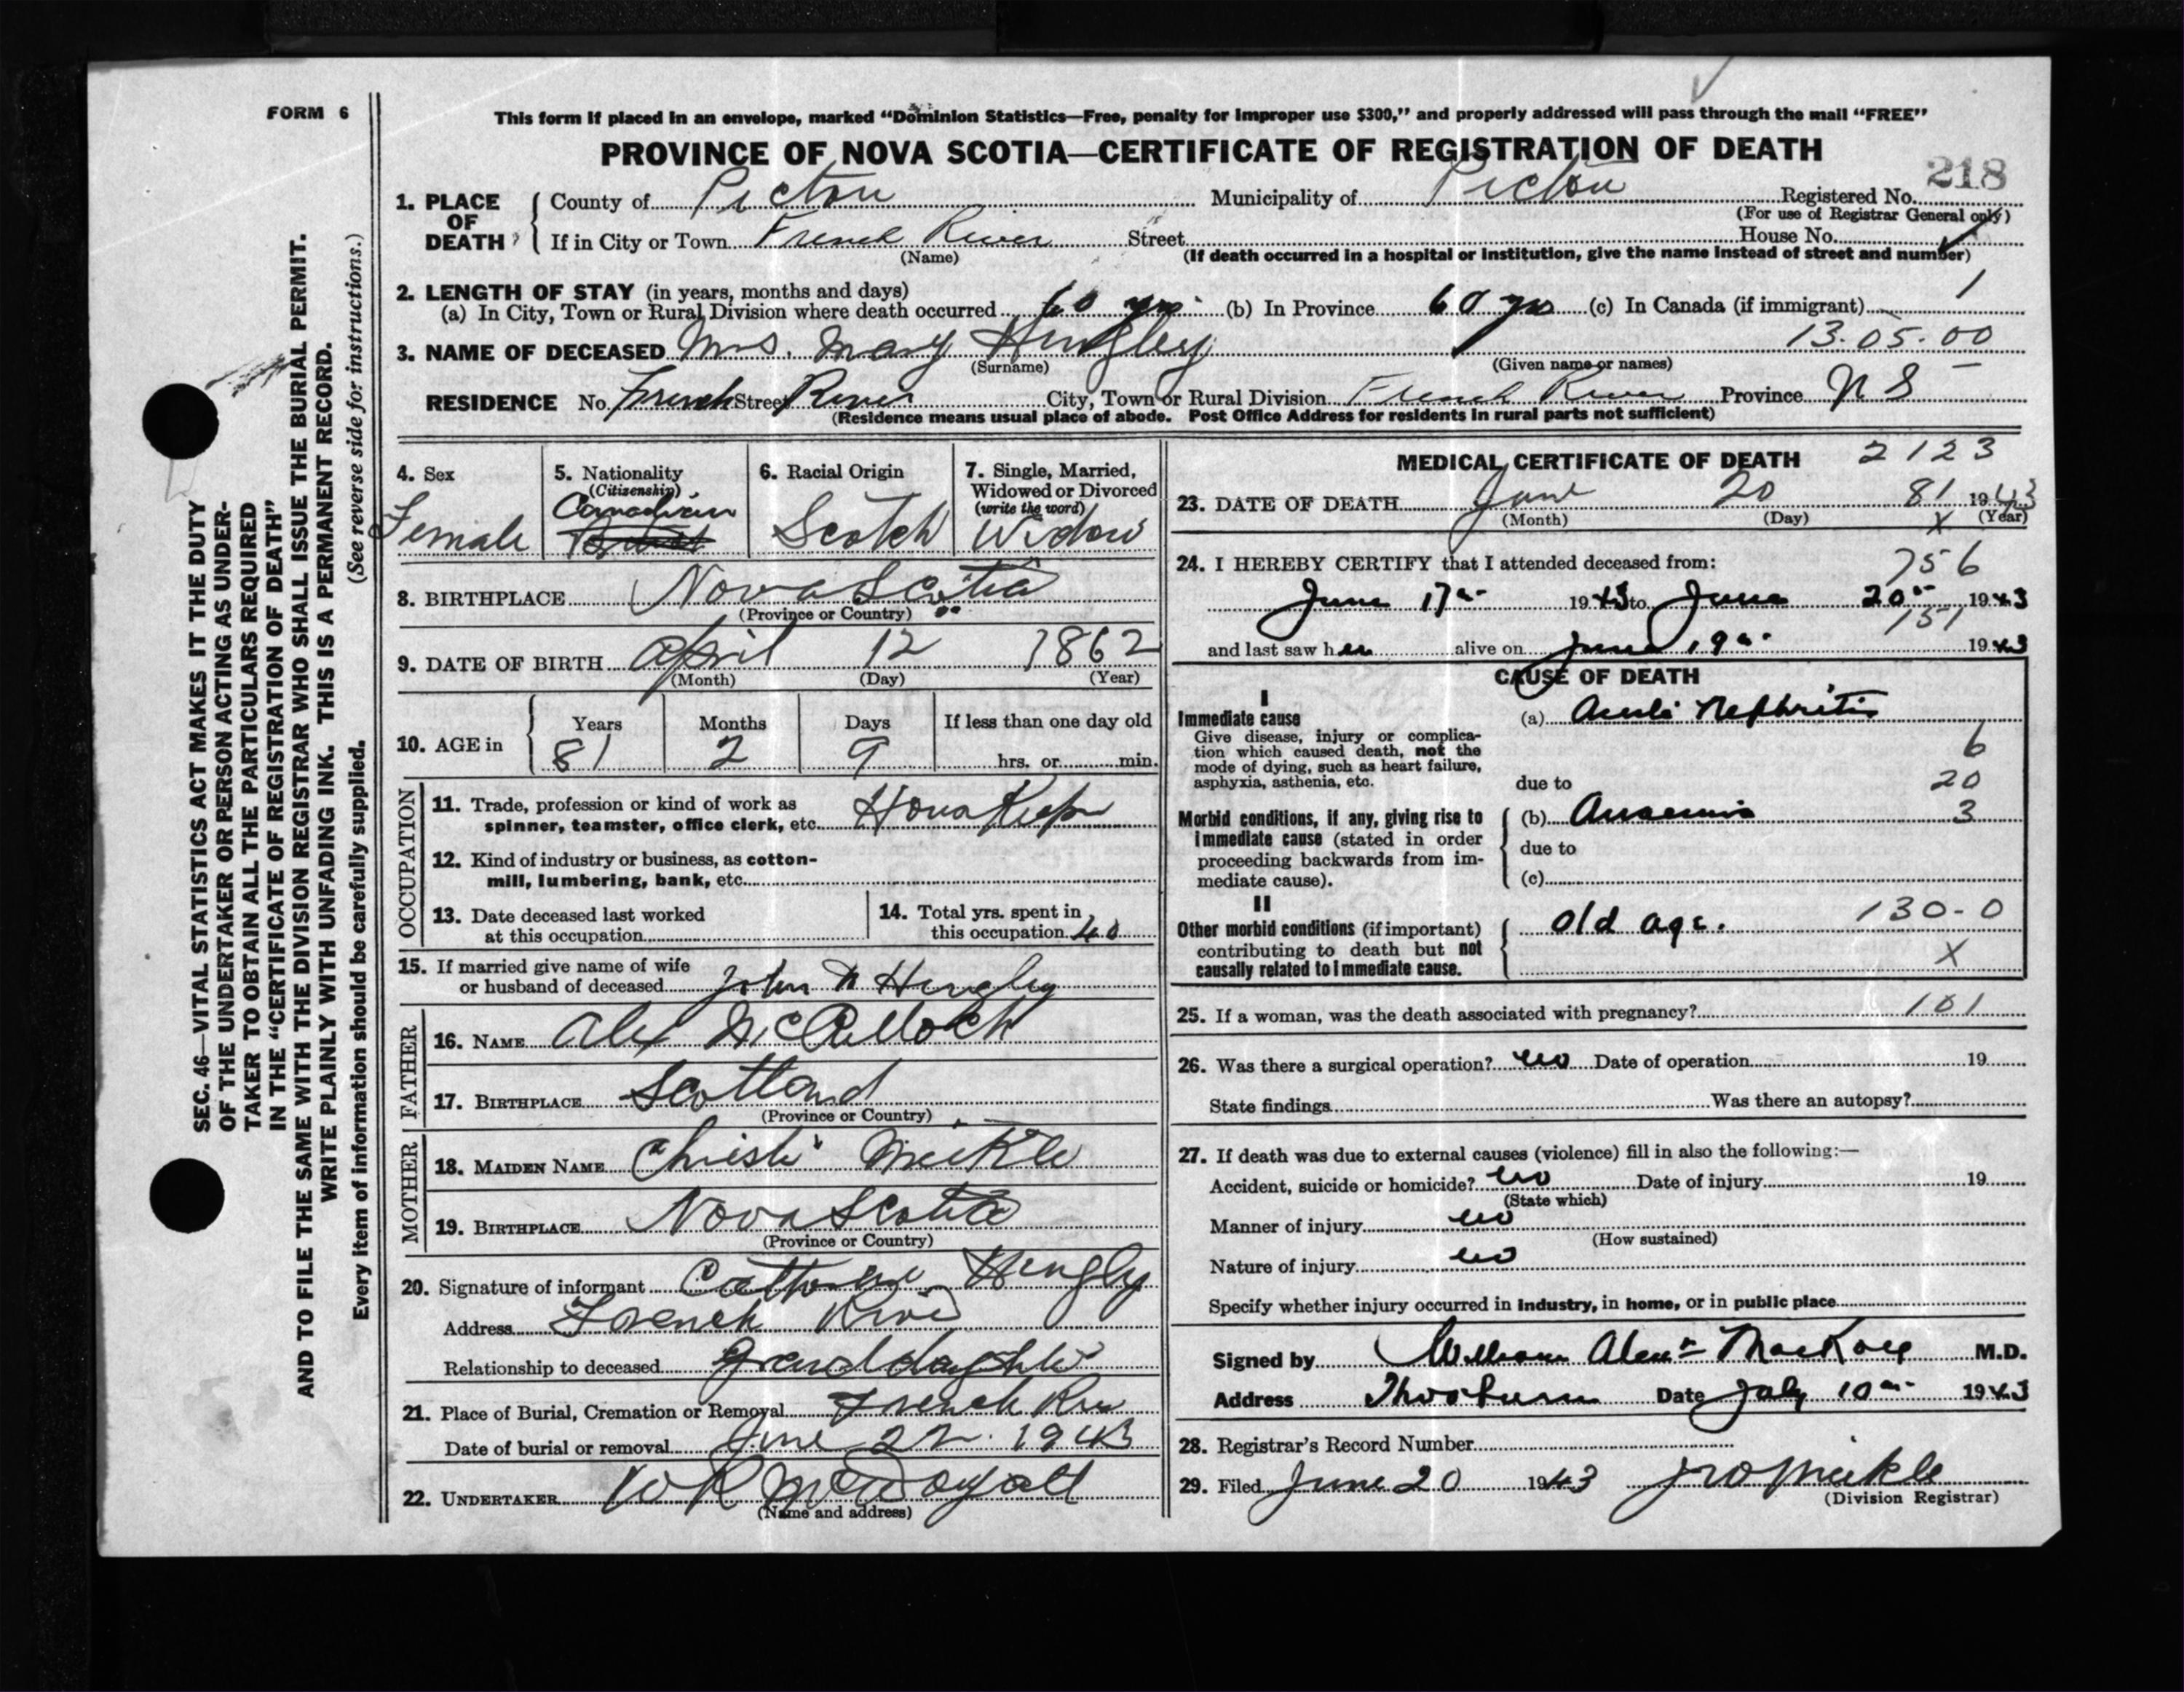 FORM 6
This form if placed in an envelope, marked “Dominion Statistics—Free, penalty for improper use $300,” and properly addressed will pass through the mail “FREE”
PROVINCE OF NOVA SCOTIA—CERTIFICATE OF REGISTRATION OF DEATH
218
1. PLACE OF DEATH County of Pictou Municipality of Pictou Registered No.
(For use of Registrar General only)
If in City or Town French River Street House No.
(Name) (If death occurred in a hospital or institution, give the name instead of street and number)
2. LENGTH OF STAY (in years, months and days)
(a) In City, Town or Rural Division where death occurred 60 yrs (b) In Province 60 yrs (c) In Canada (if immigrant) 1
3. NAME OF DECEASED Mrs. Mary Hingley 13.05.00
(Surname) (Given name or names)
RESIDENCE No. French Street River City, Town or Rural Division French River Province N S
(Residence means usual place of abode. Post Office Address for residents in rural parts not sufficient)
4. Sex Female
5. Nationality (Citizenship) Canadian
6. Racial Origin Scotch
7. Single, Married, Widowed or Divorced (write the word) Widow
8. BIRTHPLACE Nova Scotia
(Province or Country)
9. DATE OF BIRTH April 12 1862
(Month) (Day) (Year)
10. AGE in Years Months Days If less than one day old
81 2 9 hrs. or min.
OCCUPATION
11. Trade, profession or kind of work as
spinner, teamster, office clerk, etc.
12. Kind of industry or business, as cotton-
mill, lumbering, bank, etc.
13. Date deceased last worked
at this occupation
14. Total yrs. spent in
this occupation 40
15. If married give name of wife
or husband of deceased John Hingley
FATHER
16. NAME Alex McCulloch
17. BIRTHPLACE Scotland
(Province or Country)
MOTHER
18. MAIDEN NAME Christi Meikle
19. BIRTHPLACE Nova Scotia
(Province or Country)
20. Signature of informant Catherine Hingley
Address French River
Relationship to deceased Granddaughter
21. Place of Burial, Cremation or Removal French River
Date of burial or removal June 22. 1943
22. UNDERTAKER W R McDougall
(Name and address)
MEDICAL CERTIFICATE OF DEATH 2123
23. DATE OF DEATH June 20 81 1943
(Month) (Day) X (Year)
24. I HEREBY CERTIFY that I attended deceased from:
756
June 17th 1943 to June 20th 1943
151
and last saw her alive on June 19th 1943
CAUSE OF DEATH
I
Immediate cause
Give disease, injury or complica-
tion which caused death, not the
mode of dying, such as heart failure,
asphyxia, asthenia, etc.
(a) Acute Nephritis
6
due to 20
Morbid conditions, if any, giving rise to
immediate cause (stated in order
proceeding backwards from im-
mediate cause).
(b) 3
due to
(c)
II
Other morbid conditions (if important)
contributing to death but not
causally related to immediate cause.
Old age. 130-0
X
25. If a woman, was the death associated with pregnancy? 101
26. Was there a surgical operation? no Date of operation 19
State findings Was there an autopsy?
27. If death was due to external causes (violence) fill in also the following:—
Accident, suicide or homicide? no Date of injury 19
(State which)
Manner of injury no
(How sustained)
Nature of injury no
Specify whether injury occurred in industry, in home, or in public place
Signed by William Alexr M.D.
Address Thorburn Date July 10th 1943
28. Registrar's Record Number
29. Filed June 20 1943 Meikle
(Division Registrar)
SEC. 46—VITAL STATISTICS ACT MAKES IT THE DUTY
OF THE UNDERTAKER OR PERSON ACTING AS UNDER-
TAKER TO OBTAIN ALL THE PARTICULARS REQUIRED
IN THE “CERTIFICATE OF REGISTRATION OF DEATH”
AND TO FILE THE SAME WITH THE DIVISION REGISTRAR WHO SHALL ISSUE THE BURIAL PERMIT.
WRITE PLAINLY WITH UNFADING INK. THIS IS A PERMANENT RECORD.
Every item of information should be carefully supplied. (See reverse side for instructions.)